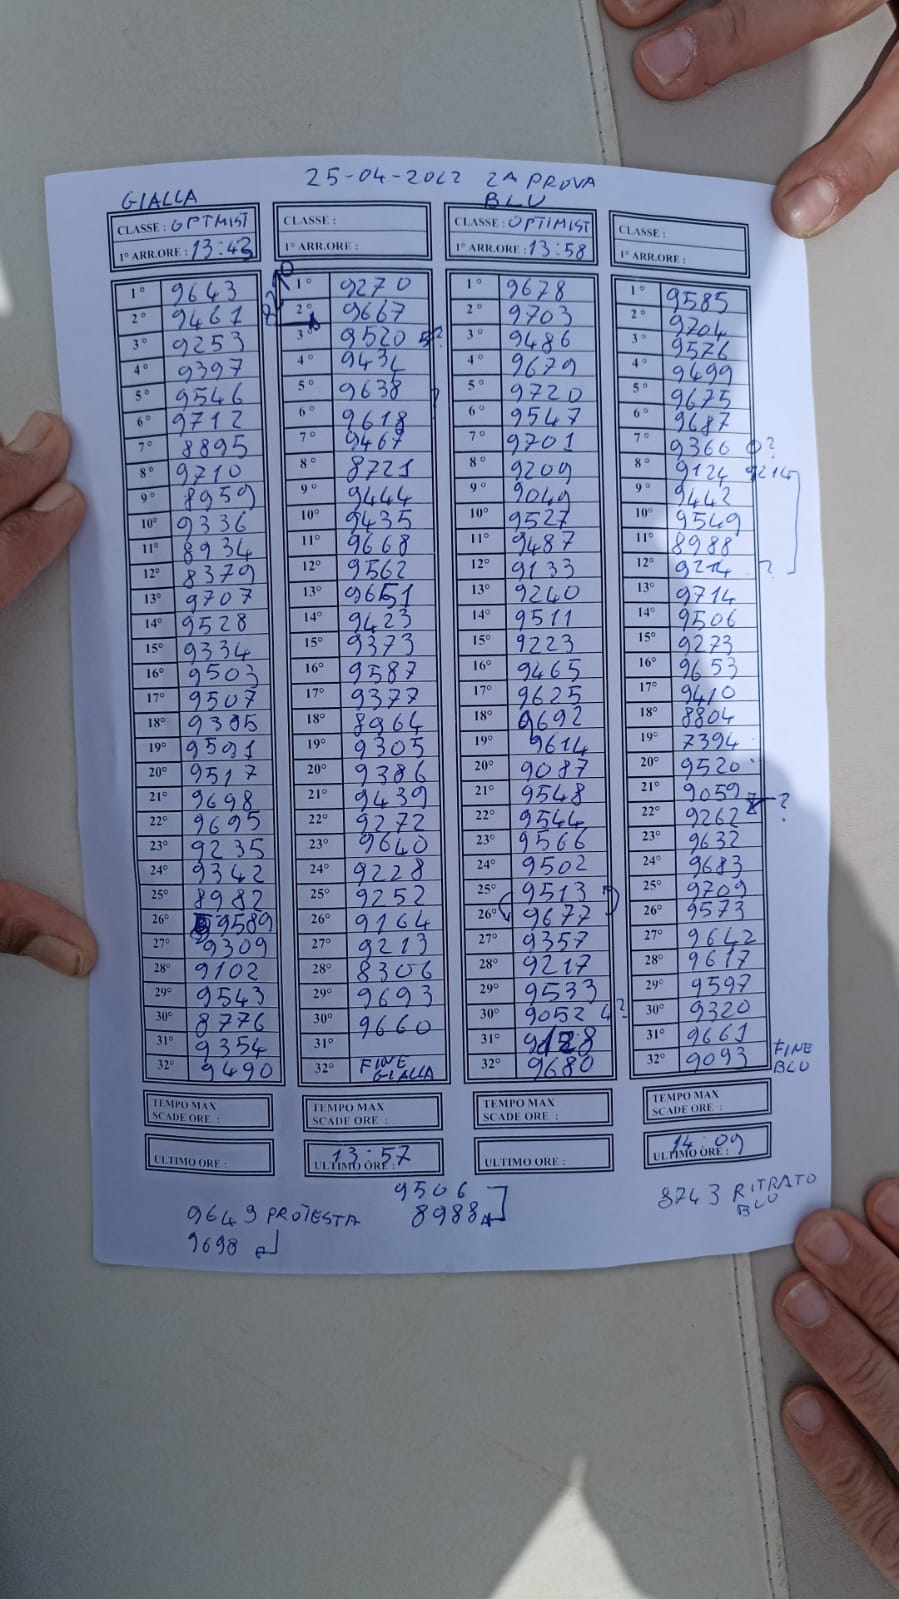 25-04-2022 2A PROVA
GIALLA
CLASSE : OPTMIST
1° ARR.ORE : 13:43
1° 9643
2° 9461
3° 9253
4° 9397
5° 9546
6° 9712
7° 8895
8° 9710
9° 8959
10° 9336
11° 8934
12° 8379
13° 9707
14° 9528
15° 9334
16° 9503
17° 9507
18° 9385
19° 9591
20° 9517
21° 9698
22° 9695
23° 9235
24° 9342
25° 8982
26° 9589
27° 9309
28° 9102
29° 9543
30° 8776
31° 9354
32° 9490
TEMPO MAX
SCADE ORE :
ULTIMO ORE :
CLASSE :
1° ARR.ORE :
1° 9270
2° 9667
3° 9520 5?
4° 9434
5° 9638 ?
6° 9618
7° 9467
8° 8721
9° 9444
10° 9435
11° 9668
12° 9562
13° 9651
14° 9423
15° 9373
16° 9587
17° 9377
18° 8964
19° 9305
20° 9386
21° 9439
22° 9272
23° 9640
24° 9228
25° 9252
26° 9164
27° 9213
28° 8306
29° 9693
30° 9660
31°
32° FINE
GIALLA
TEMPO MAX
SCADE ORE :
ULTIMO ORE : 13:57
BLU
CLASSE : OPTIMIST
1° ARR.ORE : 13:58
1° 9678
2° 9703
3° 9486
4° 9679
5° 9720
6° 9547
7° 9701
8° 9209
9° 9049
10° 9527
11° 9487
12° 9133
13° 9240
14° 9511
15° 9223
16° 9465
17° 9625
18° 9692
19° 9614
20° 9087
21° 9548
22° 9544
23° 9566
24° 9502
25° 9513
26° 9677
27° 9357
28° 9217
29° 9533
30° 9052 4?
31° 9128
32° 9680
TEMPO MAX
SCADE ORE :
ULTIMO ORE :
CLASSE :
1° ARR.ORE :
1° 9585
2° 9704
3° 9576
4° 9499
5° 9675
6° 9687
7° 9360 0?
8° 9124 9214
9° 9442
10° 9549
11° 8988
12° 9214 ?
13° 9714
14° 9506
15° 9273
16° 9653
17° 9410
18° 8804
19° 7394
20° 9520
21° 9059
22° 9262 ?
23° 9632
24° 9683
25° 9709
26° 9573
27° 9642
28° 9617
29° 9597
30° 9320
31° 9661
32° 9093 FINE
BLU
TEMPO MAX
SCADE ORE :
ULTIMO ORE : 14:09
9649 PROTESTA
9698
9506
8988
8743 RITRATO
BLU